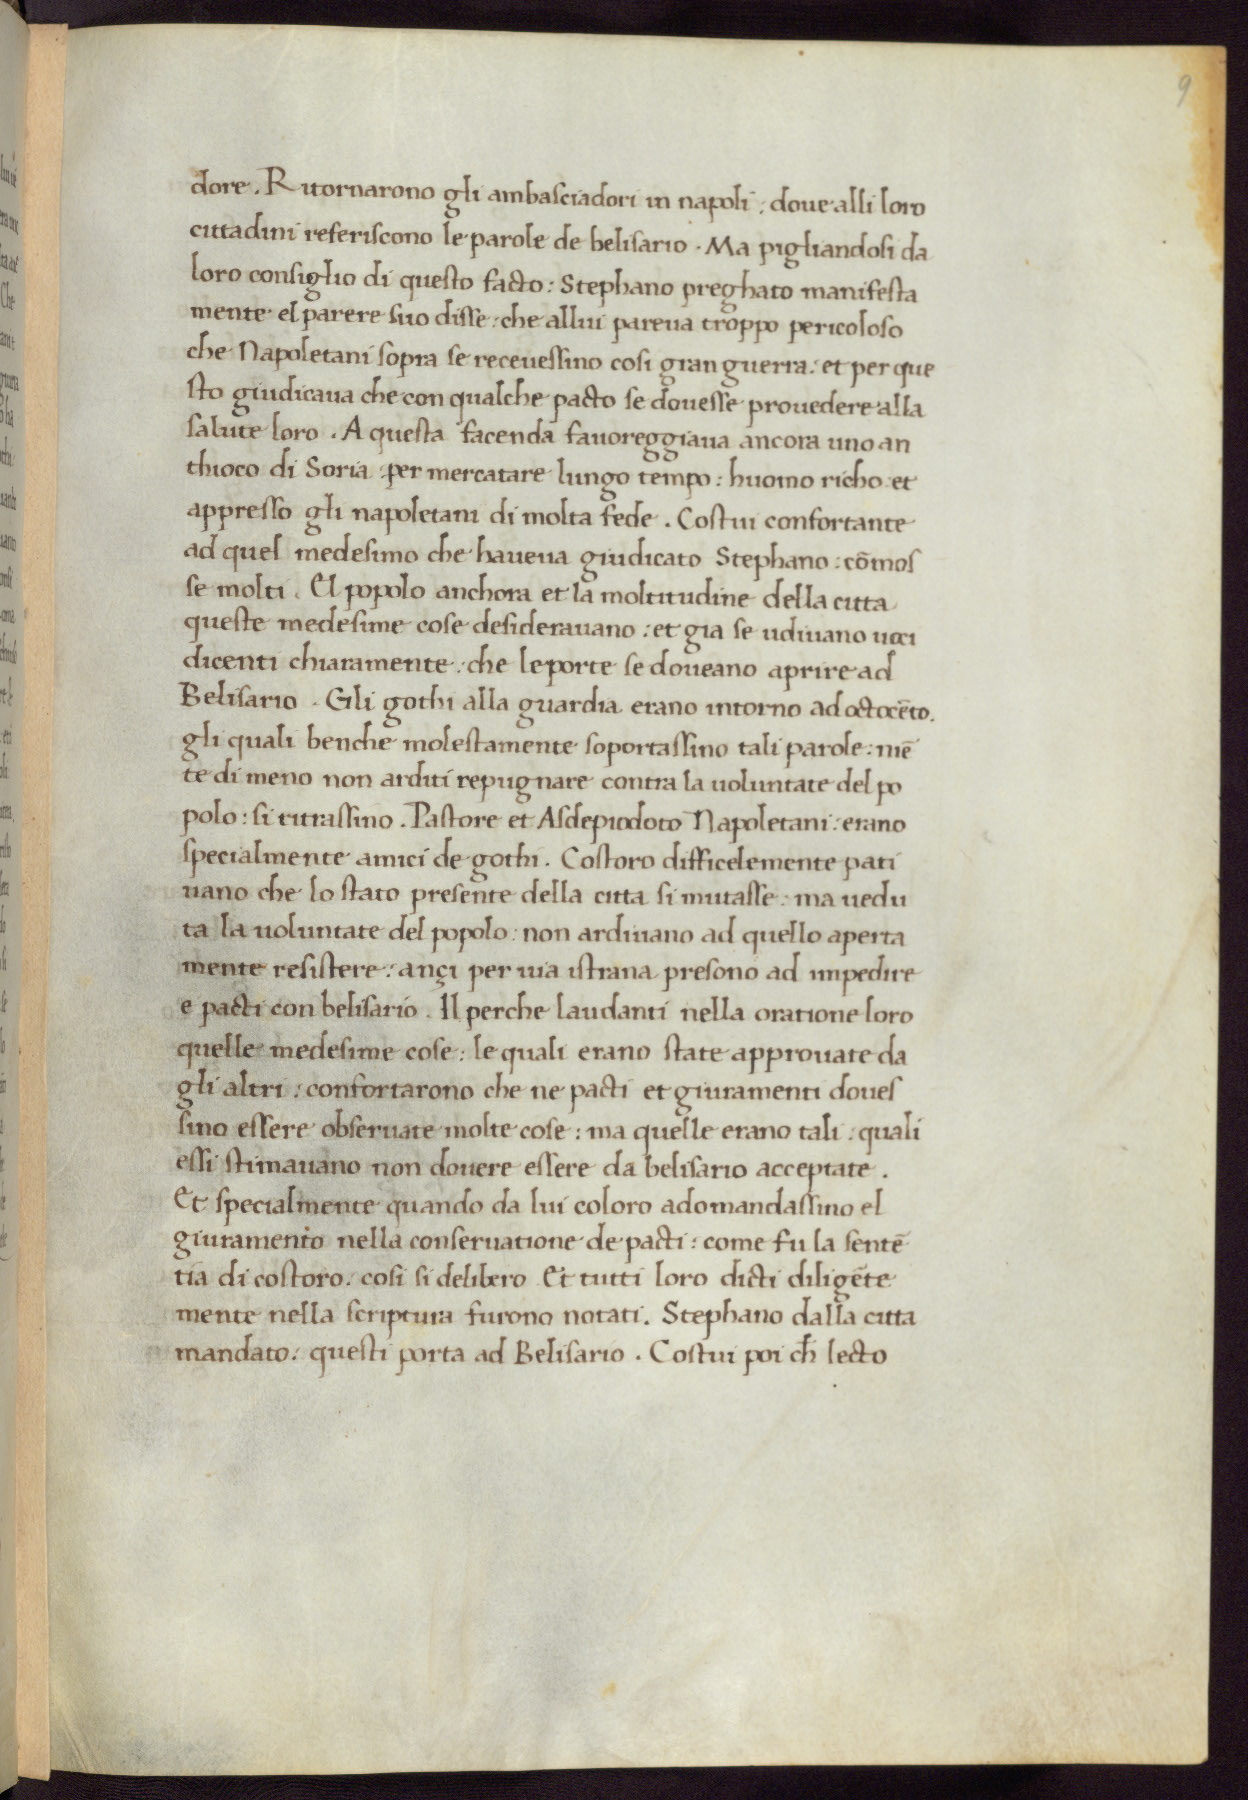 9
dore. Ritornarono gli ambasciadori in napoli: doue alli loro
cittadini referiscono le parole de belisario. Ma pigliandosi da
loro consiglio di questo facto: Stephano preghato manifesta
mente el parere suo disse: che allui pareua troppo pericoloso
che Napoletani sopra se receuessino cosi gran guerra: et per que
sto giudicaua che con qualche pacto se douesse prouedere alla
salute loro. A questa facenda fauoreggiaua ancora uno an
thioco di Soria per mercatare lungo tempo: huomo richo et
appresso gli napoletani di molta fede. Costui confortante
ad quel medesimo che haueua giudicato Stephano: cōmos
se molti. El popolo anchora et la moltitudine della citta
queste medesime cose desiderauano: et gia se udiuano uoci
dicenti chiaramente: che le porte se doueano aprire ad
Belisario. Gli gothi alla guardia erano intorno ad octocēto.
gli quali benche molestamente soportassino tali parole: niē
te di meno non arditi repugnare contra la uoluntate del po
polo: si ritrassino. Pastore et Asclepiodoto Napoletani: erano
specialmente amici de gothi. Costoro difficelemente pati
uano che lo stato presente della citta si mutasse: ma uedu
ta la uoluntate del popolo: non ardiuano ad quello aperta
mente resistere: ançi per uia istrana presono ad impedire
e pacti con belisario. Il perche laudanti nella oratione loro
quelle medesime cose: le quali erano state approuate da
gli altri: confortarono che ne pacti et giuramenti doues
sino essere obseruate molte cose: ma quelle erano tali: quali
essi stimauano non douere essere da belisario acceptate.
Et specialmente quando da lui coloro adomandassino el
giuramento nella conseruatione de pacti: come fu la sentē
tia di costoro. cosi si delibero Et tutti loro dicti diligēte
mente nella scriptura furono notati. Stephano dalla citta
mandato: questi porta ad Belisario. Costui poi cħ lecto